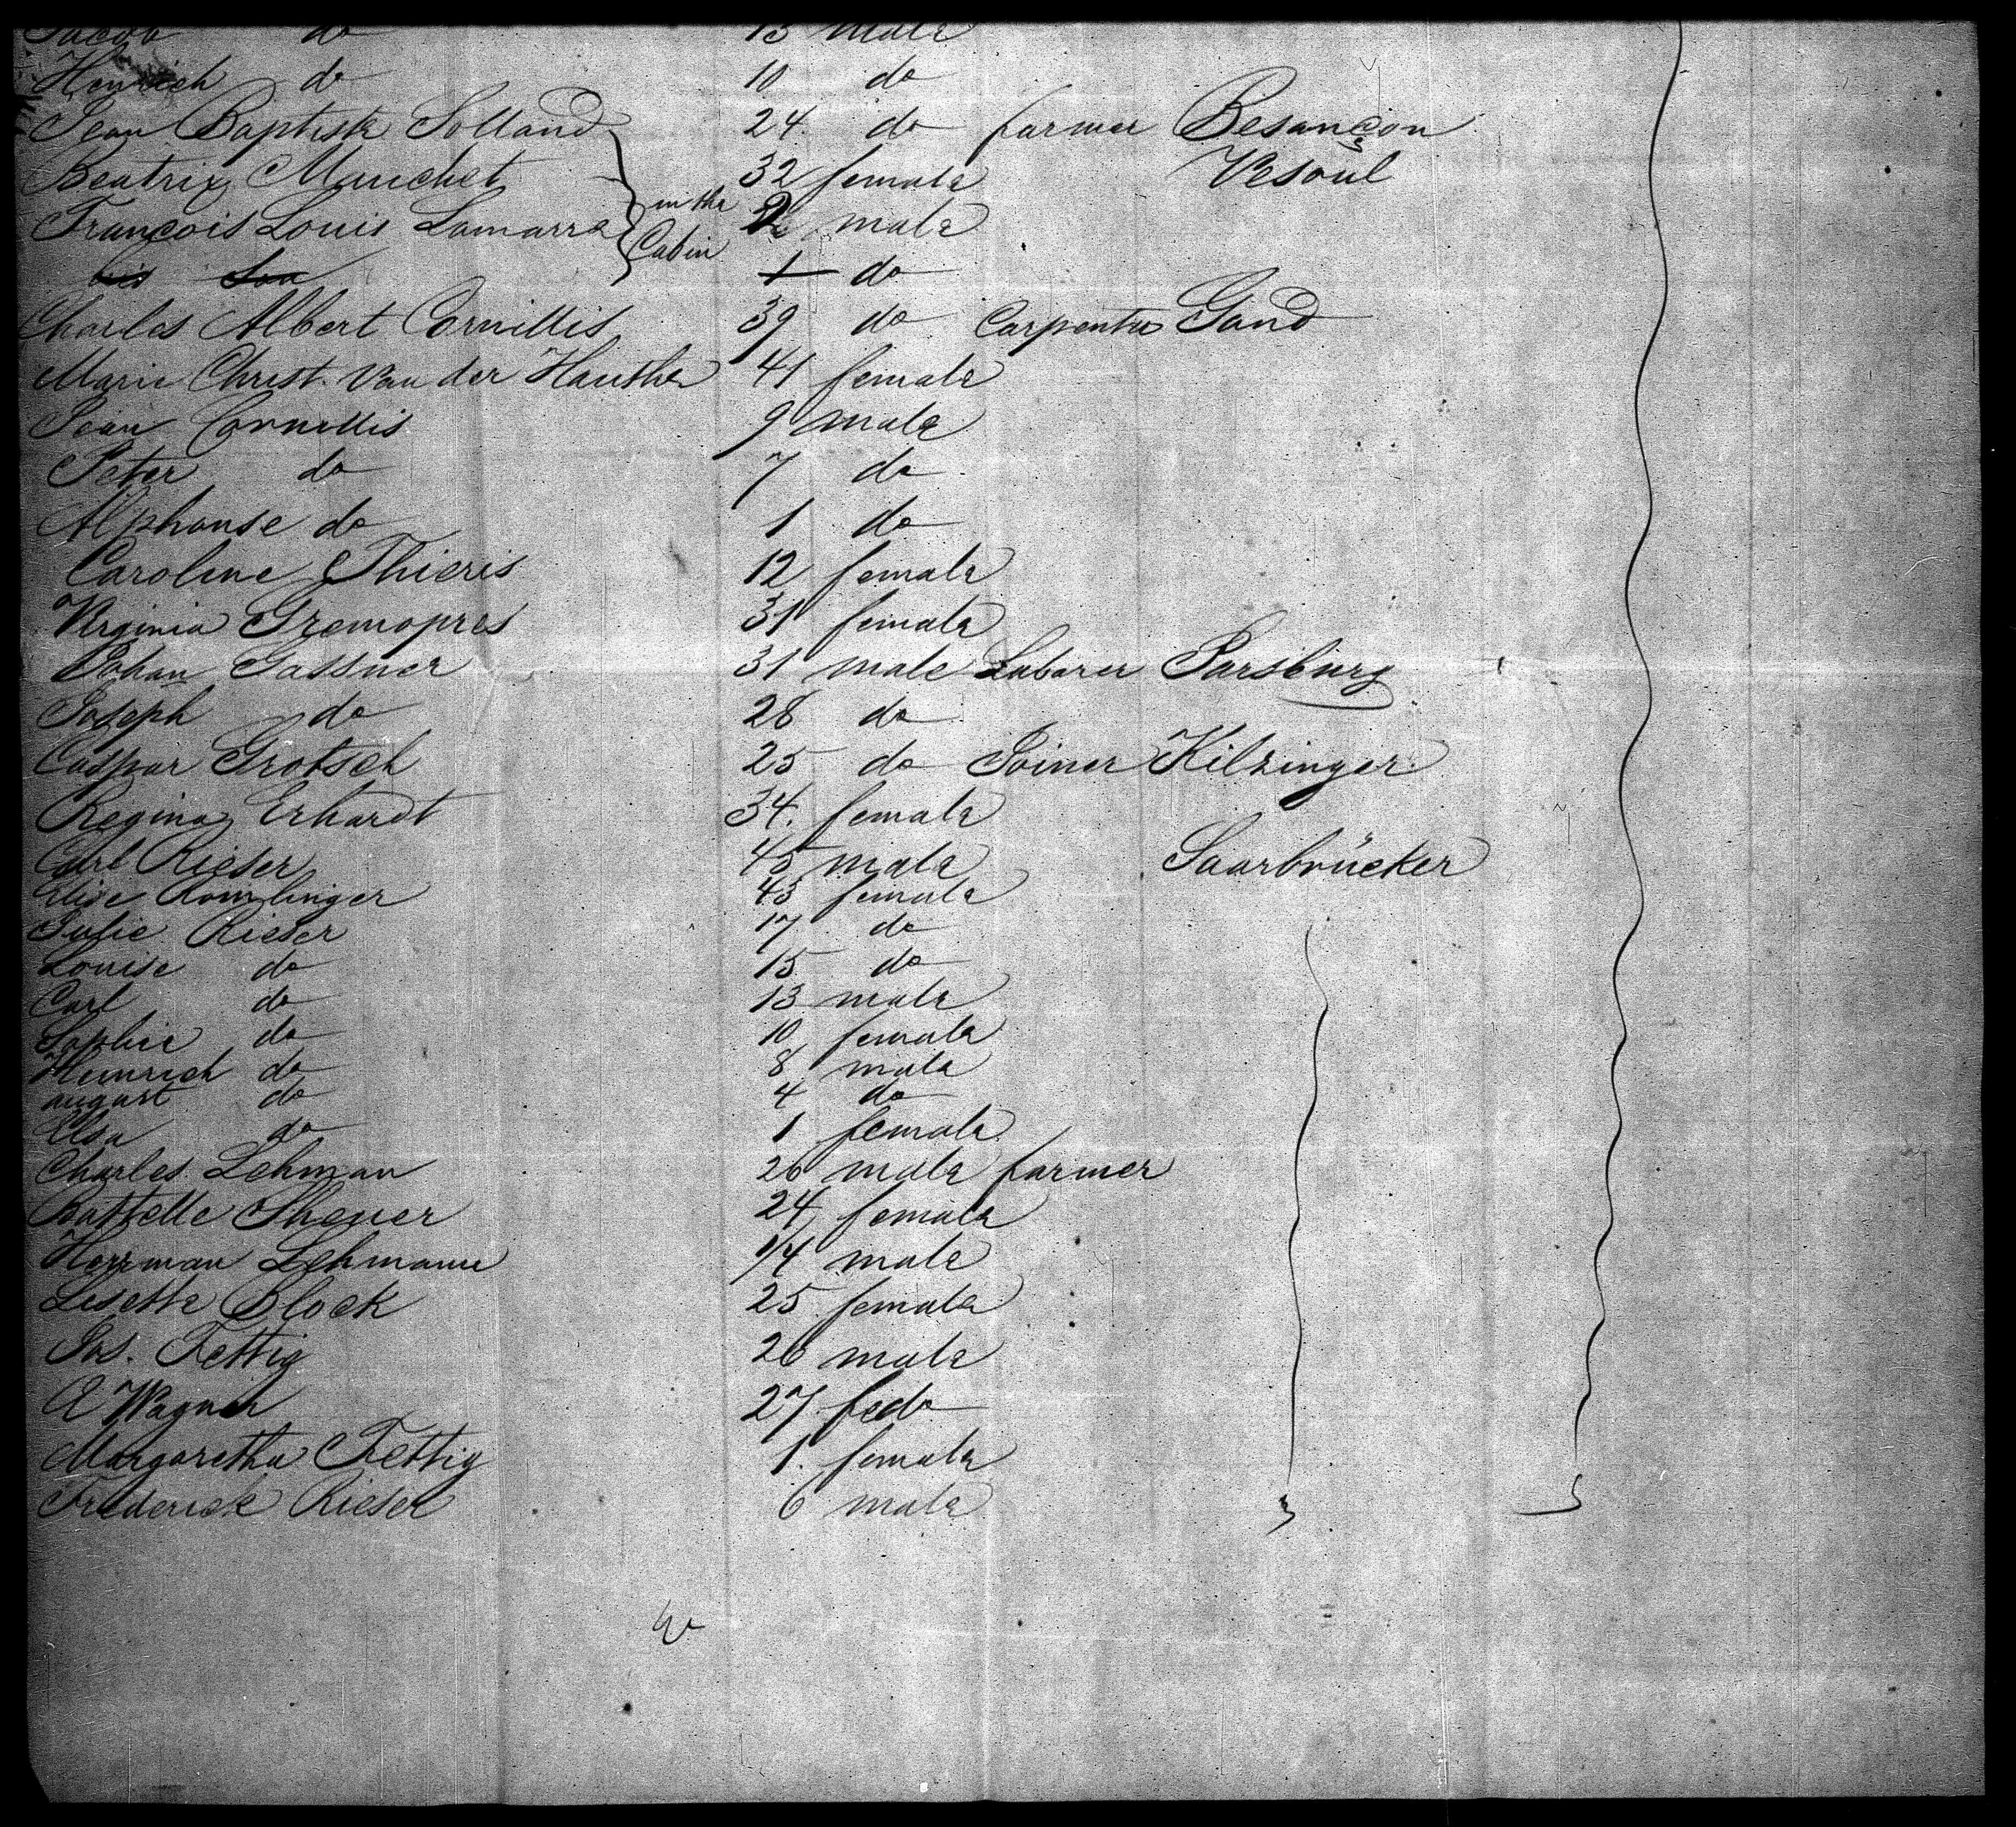 Jacob do 13 male
Heinrich do 10 do
Jean Baptiste Solland 24 do farmer Besançon
Beatrix Muuchet 32 female Vesoul
François Louis Lamarre in the Cabin 2 male
his Son 1 do
Charles Albert Cornillis 39 do Carpenter Gand
Marie Christ. Van der Hauthe 41 female
Jean Cornillis 9 male
Peter do 7 do
Alphonse do 1 do
Caroline Thieris 12 female
Virginia Gremopres 31 female
Johan Gassner 31 male Laborer Parsburg
Joseph do 28 do
Caspar Grotsch 25 do Joiner Kilzinger
Regina Erhardt 34. female
Carl Rieser 45 male Saarbrücker
Elise Romlinger 43 female
Julie Rieser 17 do
Louise do 15 do
Carl do 13 male
Sophie do 10 female
Heinrich do 8 male
august do 4 do
Elsa do 1 female
Charles Lehman 26 male farmer
Battelle Sheuer 24 female
Herrman Lehmann 1/4 male
Lisette Block 25 female
Jos. Fettig 26 male
E Wagner 27 fedo
Margaretha Fettig 1. female
Frederick Rieser 6 male